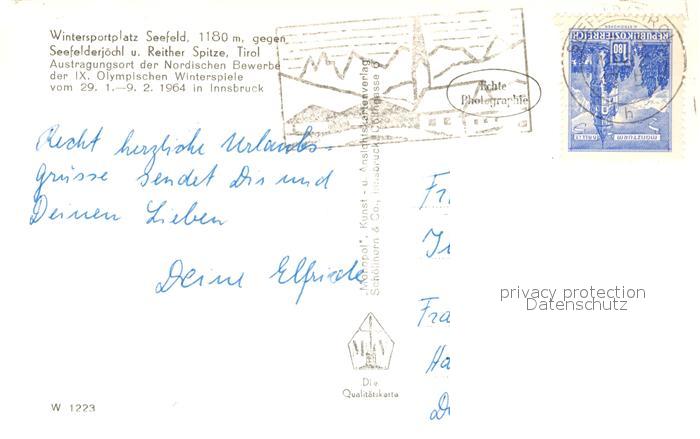 Wintersportplatz Seefeld, 1180 m, gegen
Seefelderjöchl u. Reither Spitze, Tirol
Austragungsort der Nordischen Bewerbe
der IX. Olympischen Winterspiele
vom 29. 1.—9. 2. 1964 in Innsbruck
Echte
Photographie
REPUBLIK ÖSTERREICH
1.80
MÜNZTURM
Recht herzliche Urlaubs-
grüsse sendet Dir und
Deinen Lieben
Deine Elfriede
"Monopol", Kunst- u. Ansichtskartenverlag
Schöllhorn & Co., Innsbruck,
Fr
Fra
Ha
D
privacy protection
Datenschutz
Die
Qualitätskarte
W 1223